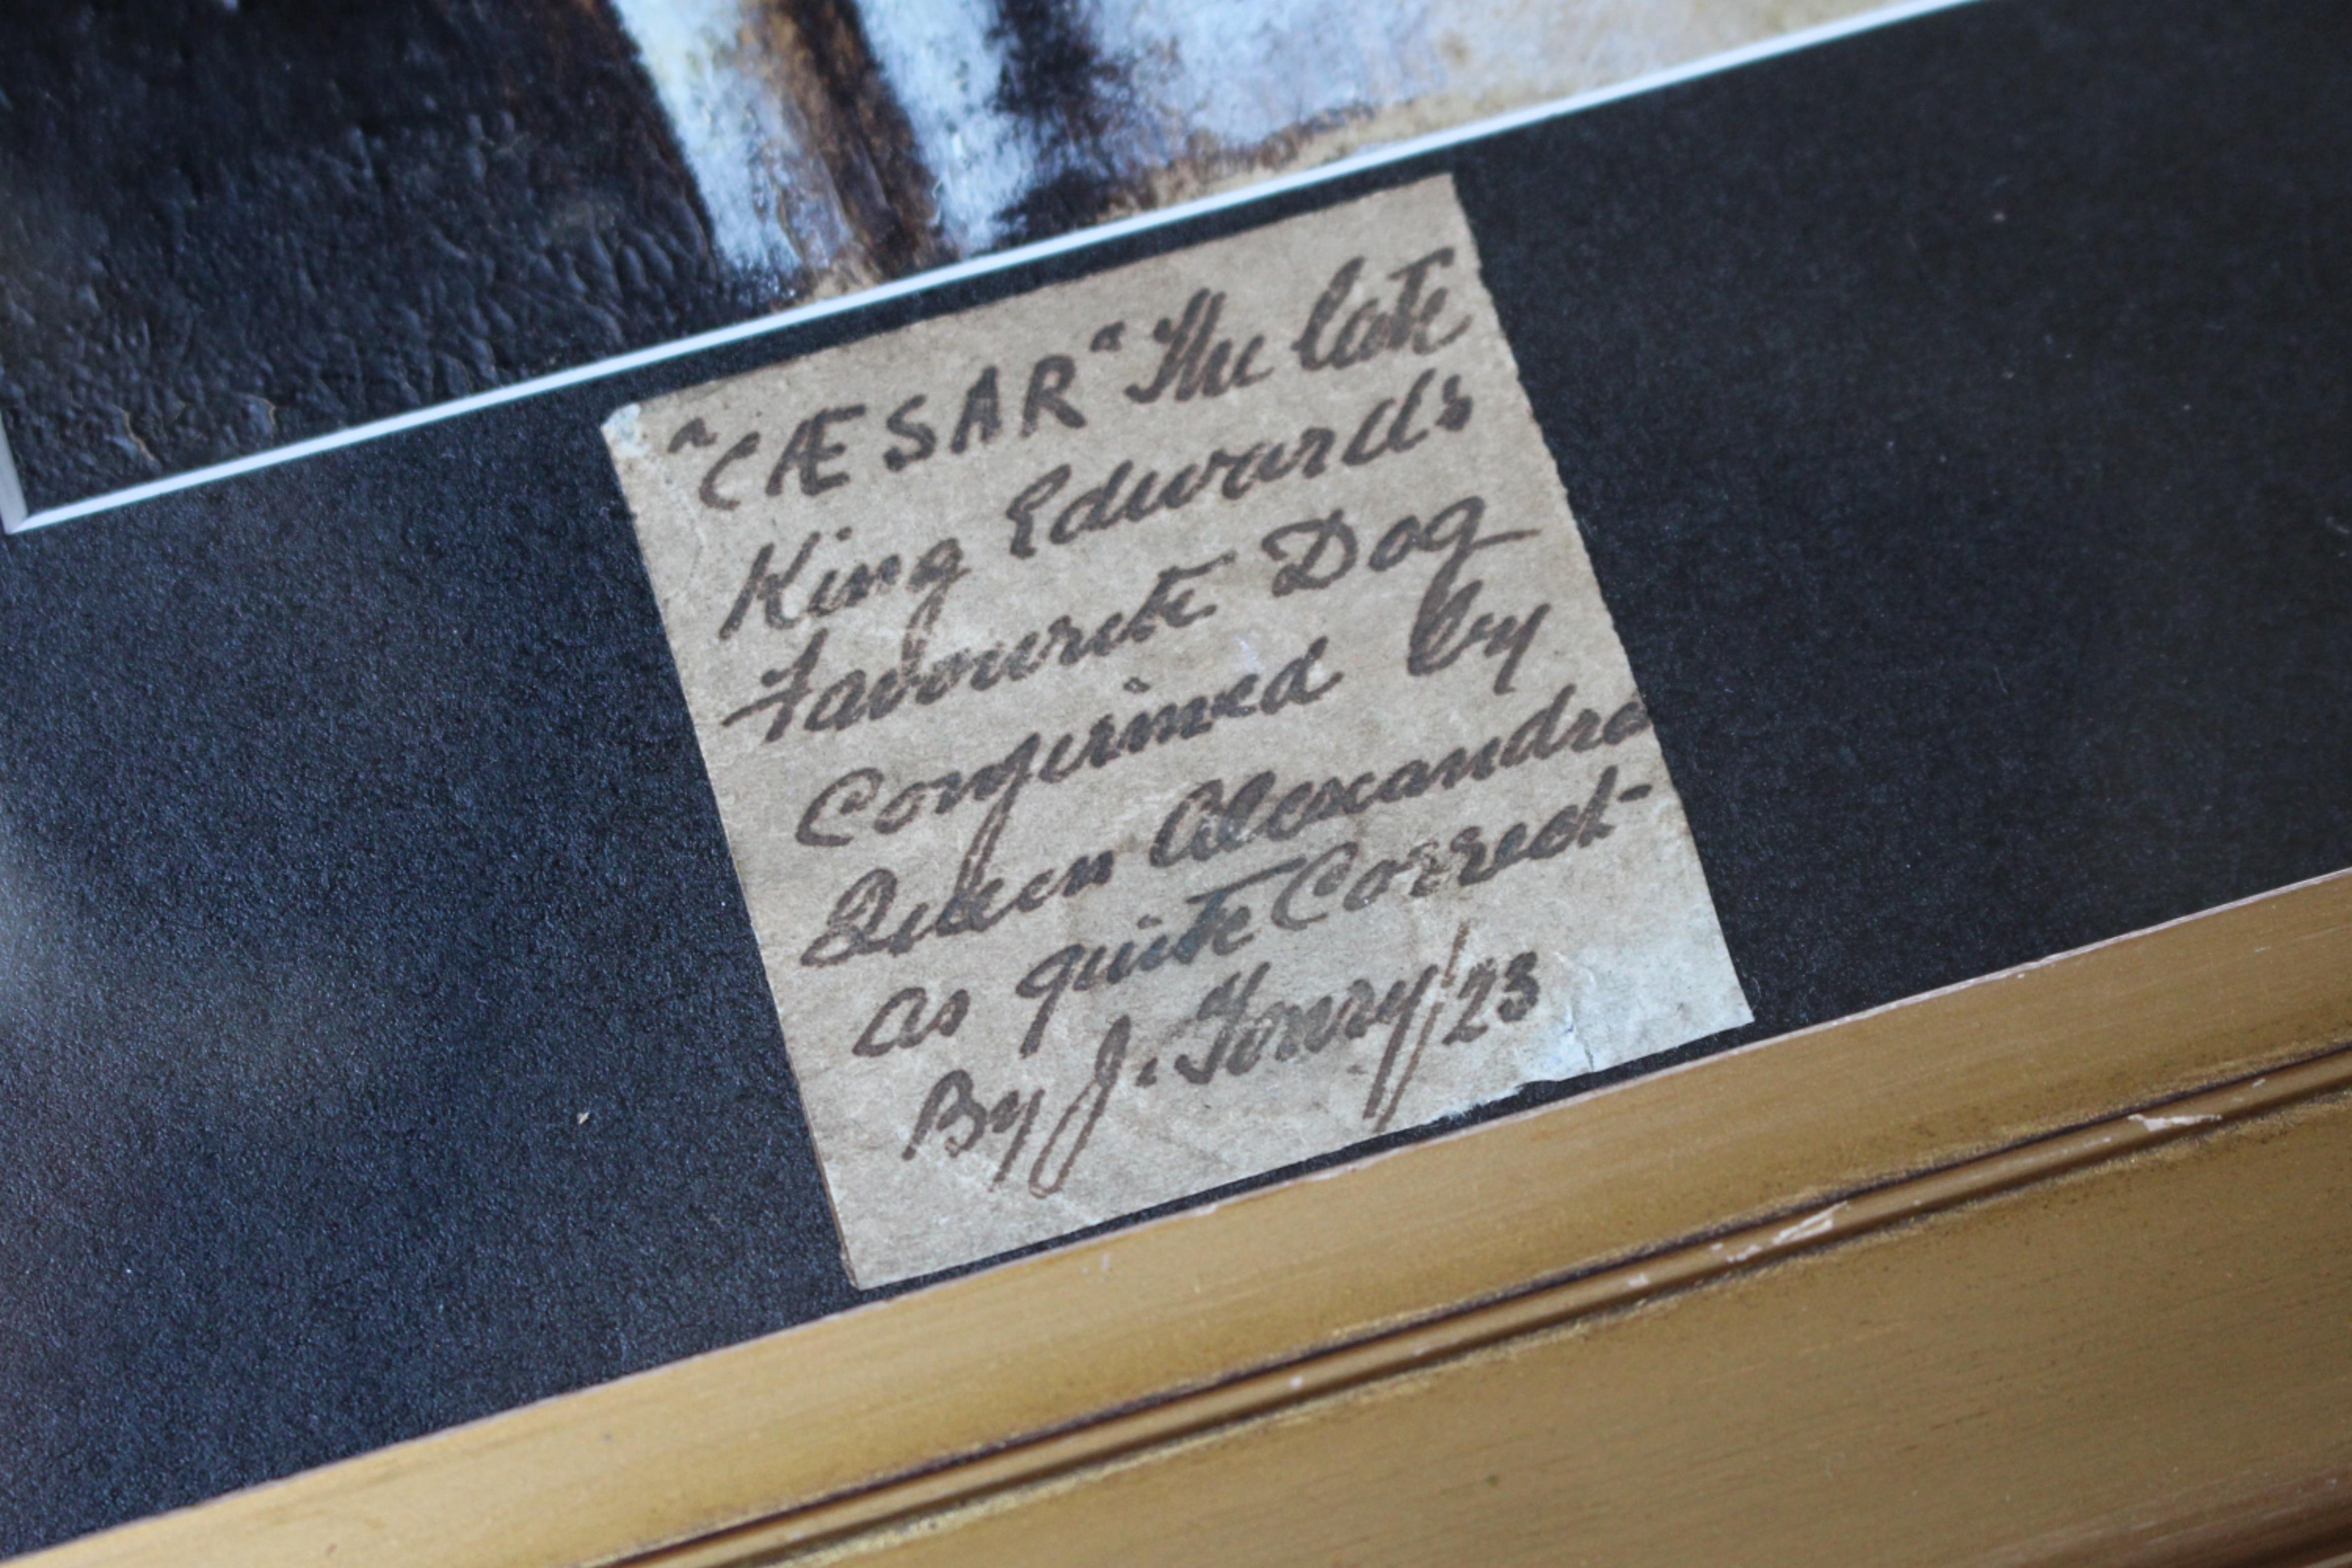 "CÆSAR" The late
King Edwards
Favourite Dog
Confirmed by
Queen Alexandra
as quite Correct-
By J. /23